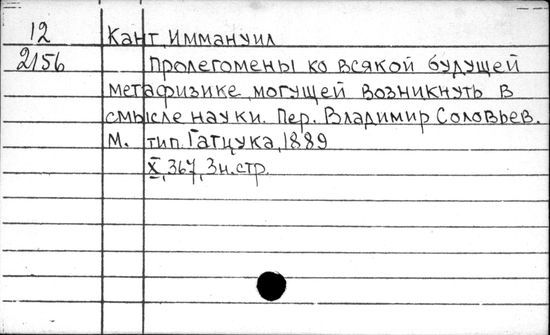 12 Кант, Иммануил
2156 Пролегомены ко всякой будущей
метафизике, могущей возникнуть в
смысле науки. Пер. Владимир Соловьев.
М. тип. Гатцука, 1889
X, 367, 3 н. стр.